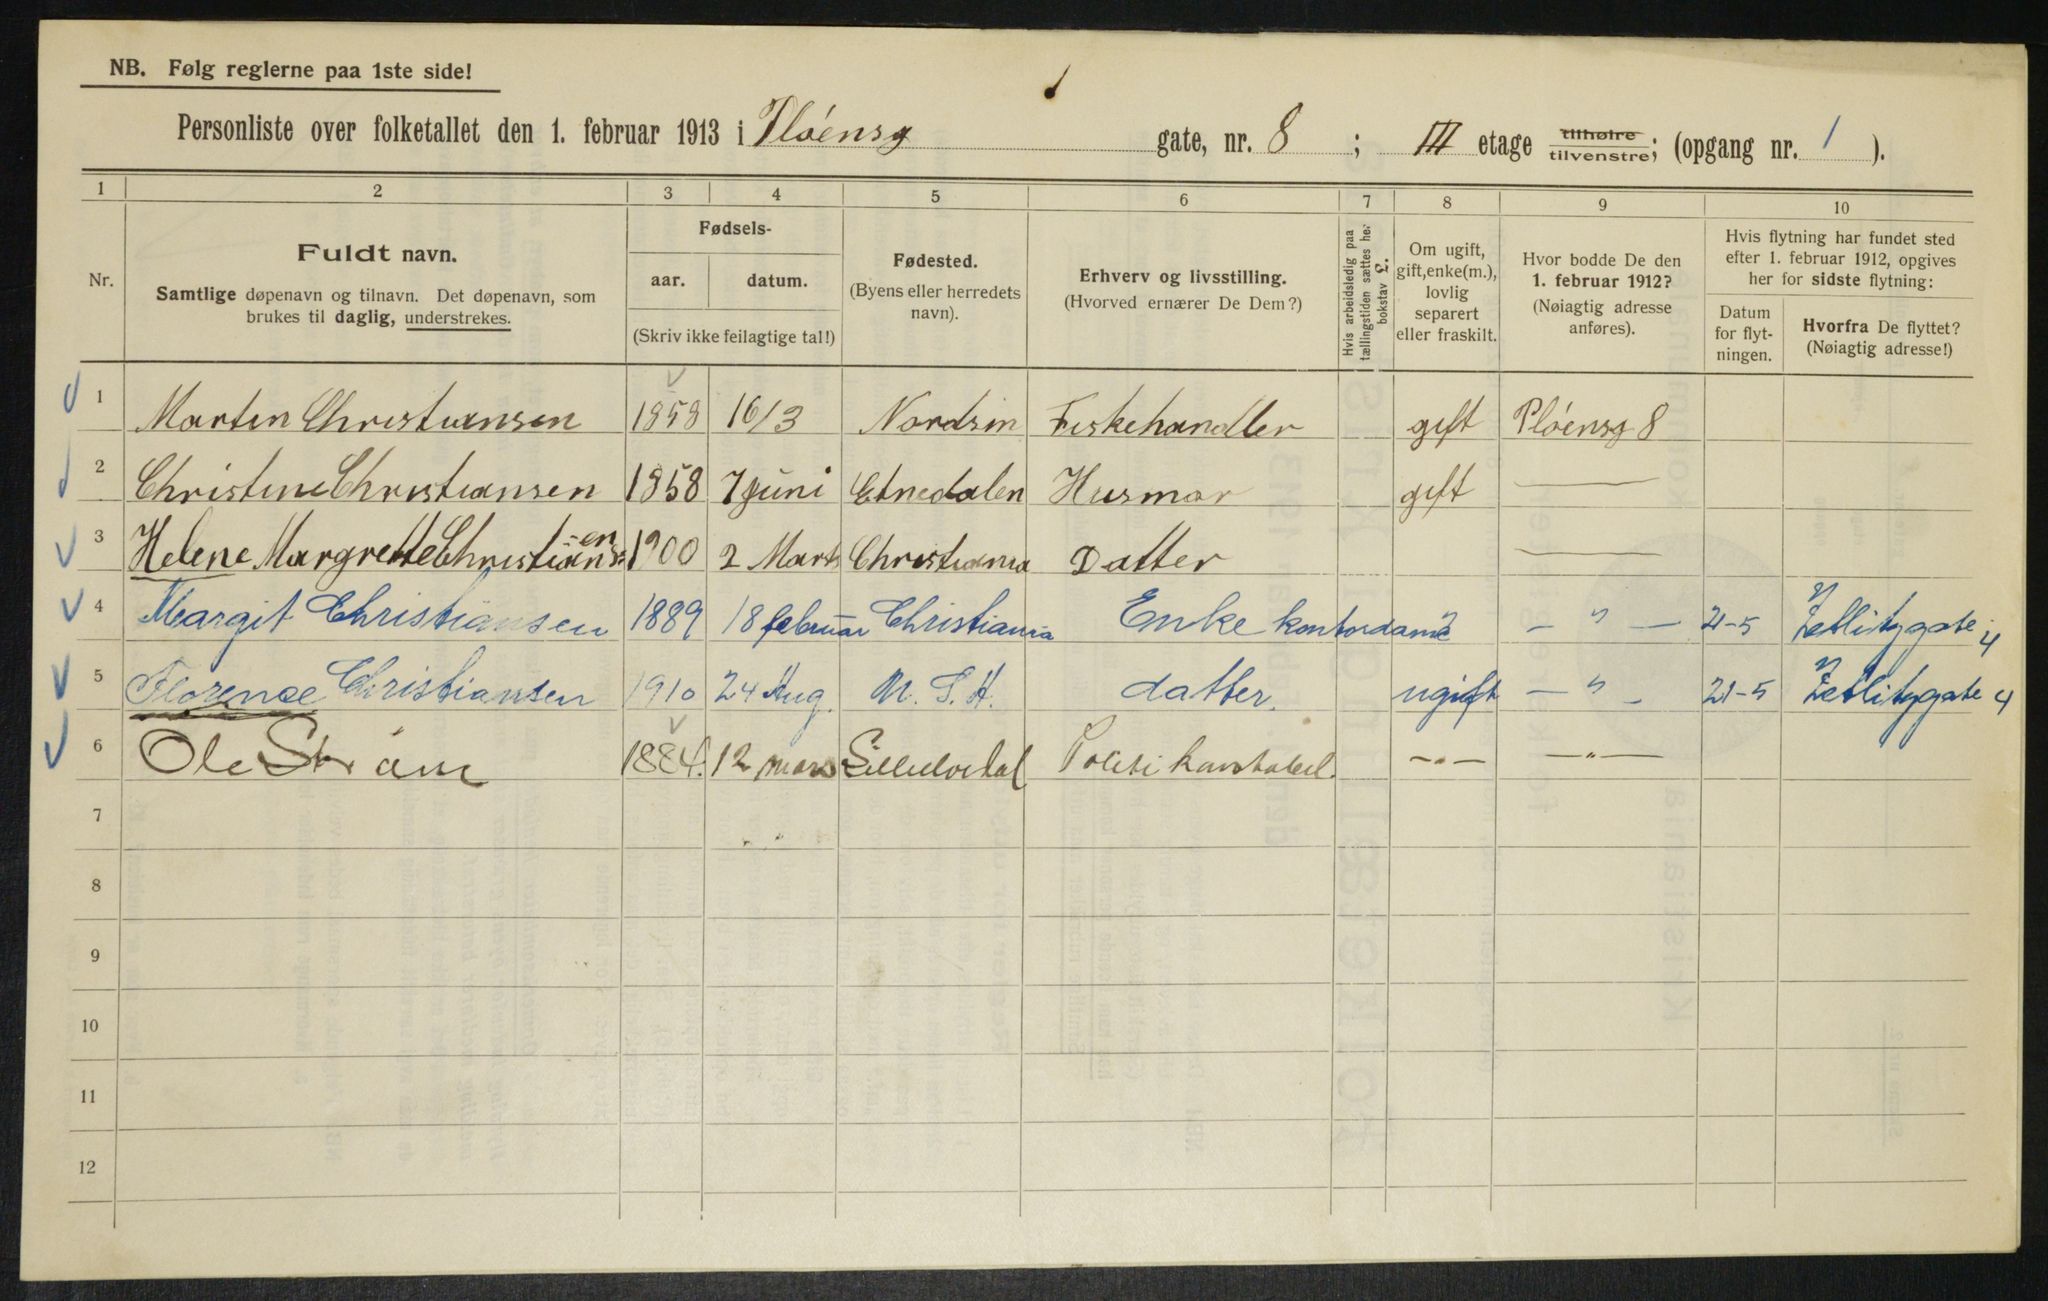 NB. Følg reglerne paa 1ste side!
Personliste over folketallet den 1. februar 1913 i Plóensg gate, nr. 8 ; III etage tilhøire tilvenstre; (opgang nr. 1 ).
1 2 3 4 5 6 7 8 9 10
Nr.
Fuldt navn.
Samtlige døpenavn og tilnavn. Det døpenavn, som
brukes til daglig, understrekes.
Fødsels-
aar. datum.
(Skriv ikke feilagtige tal!)
Fødested.
(Byens eller herredets
navn).
Erhverv og livsstilling.
(Hvorved ernærer De Dem?)
Hvis arbeidsledig paa
tællingstiden sættes her
bokstav £.
Om ugift,
gift, enke(m.),
lovlig
separert
eller fraskilt.
Hvor bodde De den
1. februar 1912?
(Nøiagtig adresse
anføres).
Hvis flytning har fundet sted
efter 1. februar 1912, opgives
her for sidste flytning:
Datum
for flyt-
ningen.
Hvorfra De flyttet?
(Nøiagtig adresse!)
1 Martin Christiansen 1858 16/3 Nordsin Fiskehandler gift Plóensg 8
2 Christine Christiansen 1858 7 juni Etnedalen Husmor gift —
3 Helene Margrette Christians=-en 1900 2 Marts Christiania Datter —
4 Margit Christiansen 1889 18 februar Christiania Enke kontordame — " — 21-5 Zetlitzgate 4
5 Florence Christiansen 1910 24 Aug. N. S. A. datter. ugift — " - 21-5 Zetlitzgate 4
6 Ole Strøm 1884. 12 mars Politi konstabel. — " — — " —
7
8
9
10
11
12